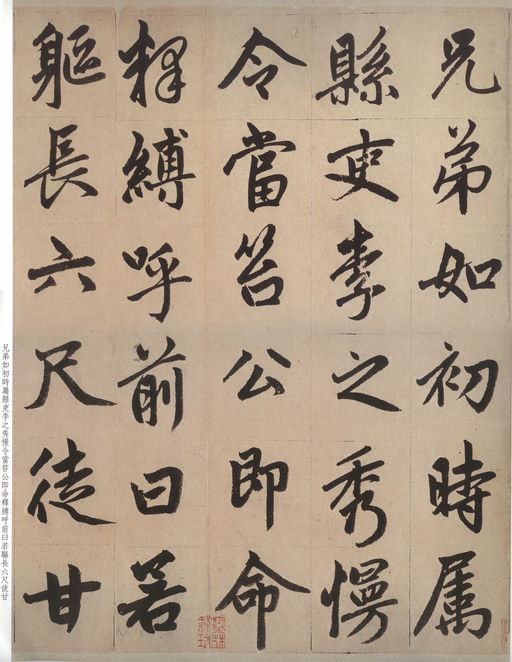 兄弟如初時属
縣吏李之秀慢
令當笞公即命
釋縛呼前曰若
軀長六尺徒甘
兄弟如初時屬縣吏李之秀慢令當笞公即命釋縛呼前曰若軀長六尺徒甘